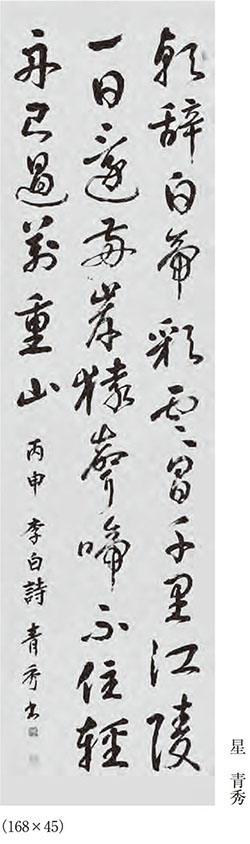 朝辞白帝彩雲間千里江陵
一日還兩岸猿聲啼不住輕
舟已過萬重山 丙申 李白詩 青秀書
星 青秀
(168×45)